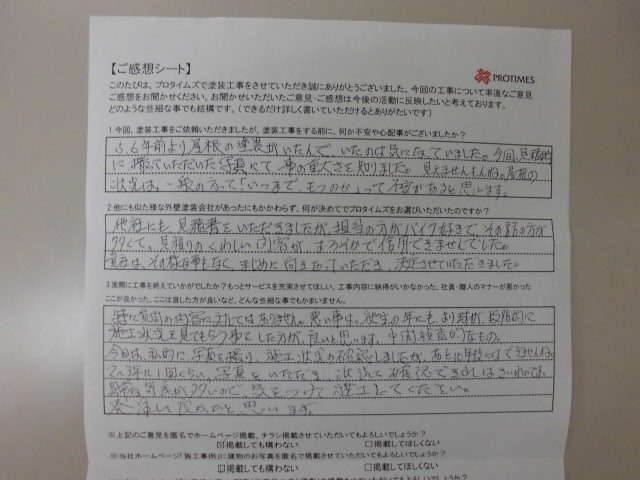 【ご感想シート】
PROTIMES
このたびは、プロタイムズで塗装工事をさせていただき誠にありがとうございました。今回の工事について率直なご意見
ご感想をお聞かせください。お聞かせいただいたご意見・ご感想は今後の活動に反映したいと考えております。
どのような些細な事でも結構です。（できるだけ詳しく書いていただけるとありがたいです）
1今回、塗装工事をご依頼いただきましたが、塗装工事をする前に、何か不安や心配事がございましたか？
5、6年前より屋根の塗装がいたんでいたのは気になっていました。今回見積時
に撮っていただいた写真にて、事の重大さを知りました。見えませんもんね。屋根の
状況は。一般の方って「いつまでもつのか」って不安があると思います。
2.他にも似た様な外壁塗装会社があったにもかかわらず、何が決めてでプロタイムズをお選びいただいたのですか？
他社にも、見積書をいただきましたが、担当の方がバイク好きで、その話の方が
多くて、見積りのくわしい内容が、おろそかで信用できませんでした。
貴社は、その様な事もなく、まじめに向きあっていただき、決定させていただきました。
3.実際に工事を終えていかがでしたか？もっとサービスを充実してほしい、工事内容に納得がいかなかった、社員・職人のマナーが悪かった
ここが良かった、ここは直した方が良いなど、どんな些細な事でもかまいません。
特に質問の内容に対してはありません。
施工状況を見てもらう事をした方が、良いと思います。中間検査的なもの。
今回は、私的に写真を撮り、施工状況の確認しましたが、あと10年後にはできませんね。
2〜3年に1回くらい、写真をいただき、状況を確認できればさいわいです。
気をつけて施工してください。
と思います。
※上記のご意見を匿名でホームページ掲載、チラシ掲載させていただいてもよろしいでしょうか？
☑掲載しても構わない □掲載してほしくない
※当社ホームページ「施工事例」に建物のお写真を匿名で掲載させていただいてもよろしいでしょうか？
☑掲載しても構わない □掲載してほしくない